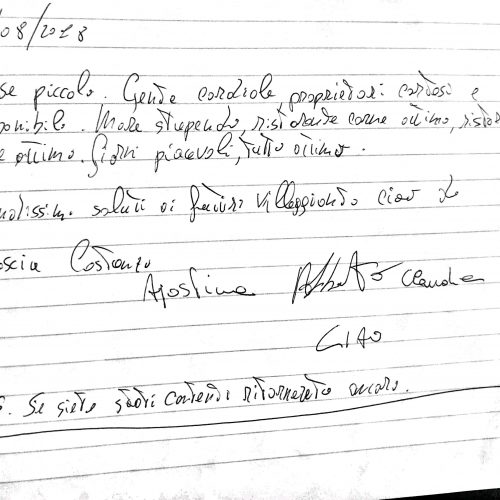 08/2018
se piccolo. Gente cordiale, proprietari cortesi e
ponibile. Mare stupendo, ristorante carne ottimo, ristor
e ottimo. Giorni piacevoli, tutto ottimo.
saluti ai futuri villeggianti ciao
Costanzo
Agostina Claudia
CIAO
Se siete stati contenti ritornerete ancora.